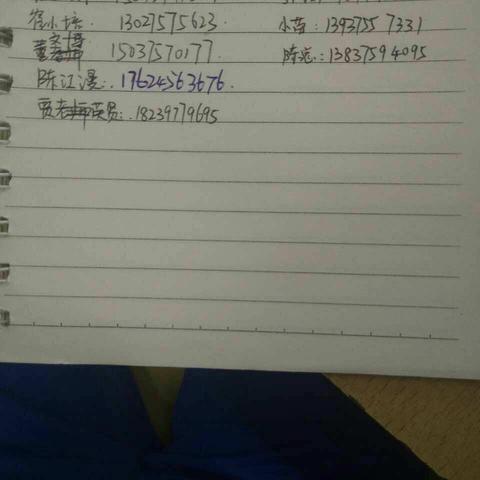 徐小培. 13027575623. 小苗: 13937557331
15037570177 陈宪: 13837594095
陈江漫: 17624563676.
贾老师英员: 18239779695